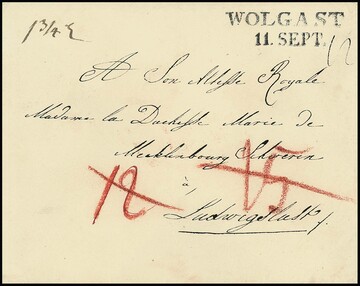 WOLGAST
11. SEPT.
1 3/4
12
A Son Altesse Royale
Madame la Duchesse Marie de
Mecklenbourg Schwerin
15
à
12
Ludwigslust